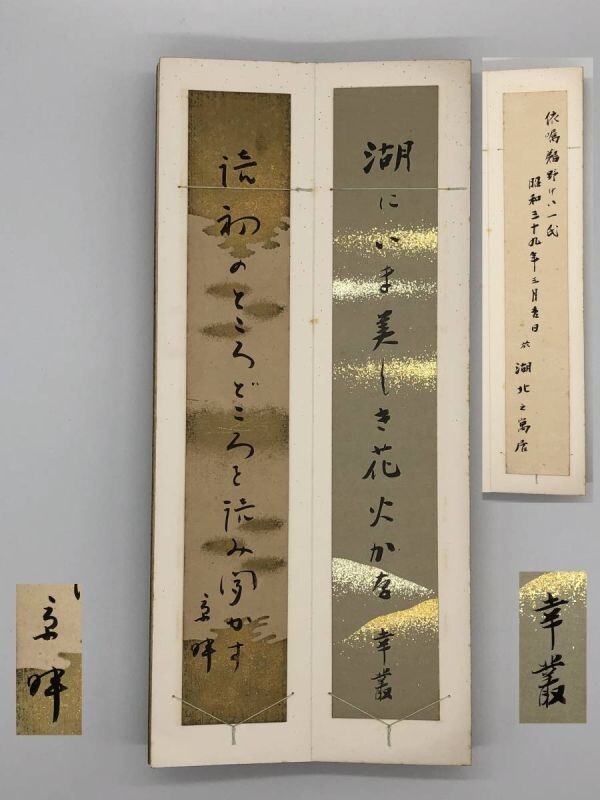 湖にいま美しき花火かな
幸叢
読初のところどころを読み聞かす
京畔
昭和三十九年三月吉日
於 湖北之萬居
京畔
幸叢